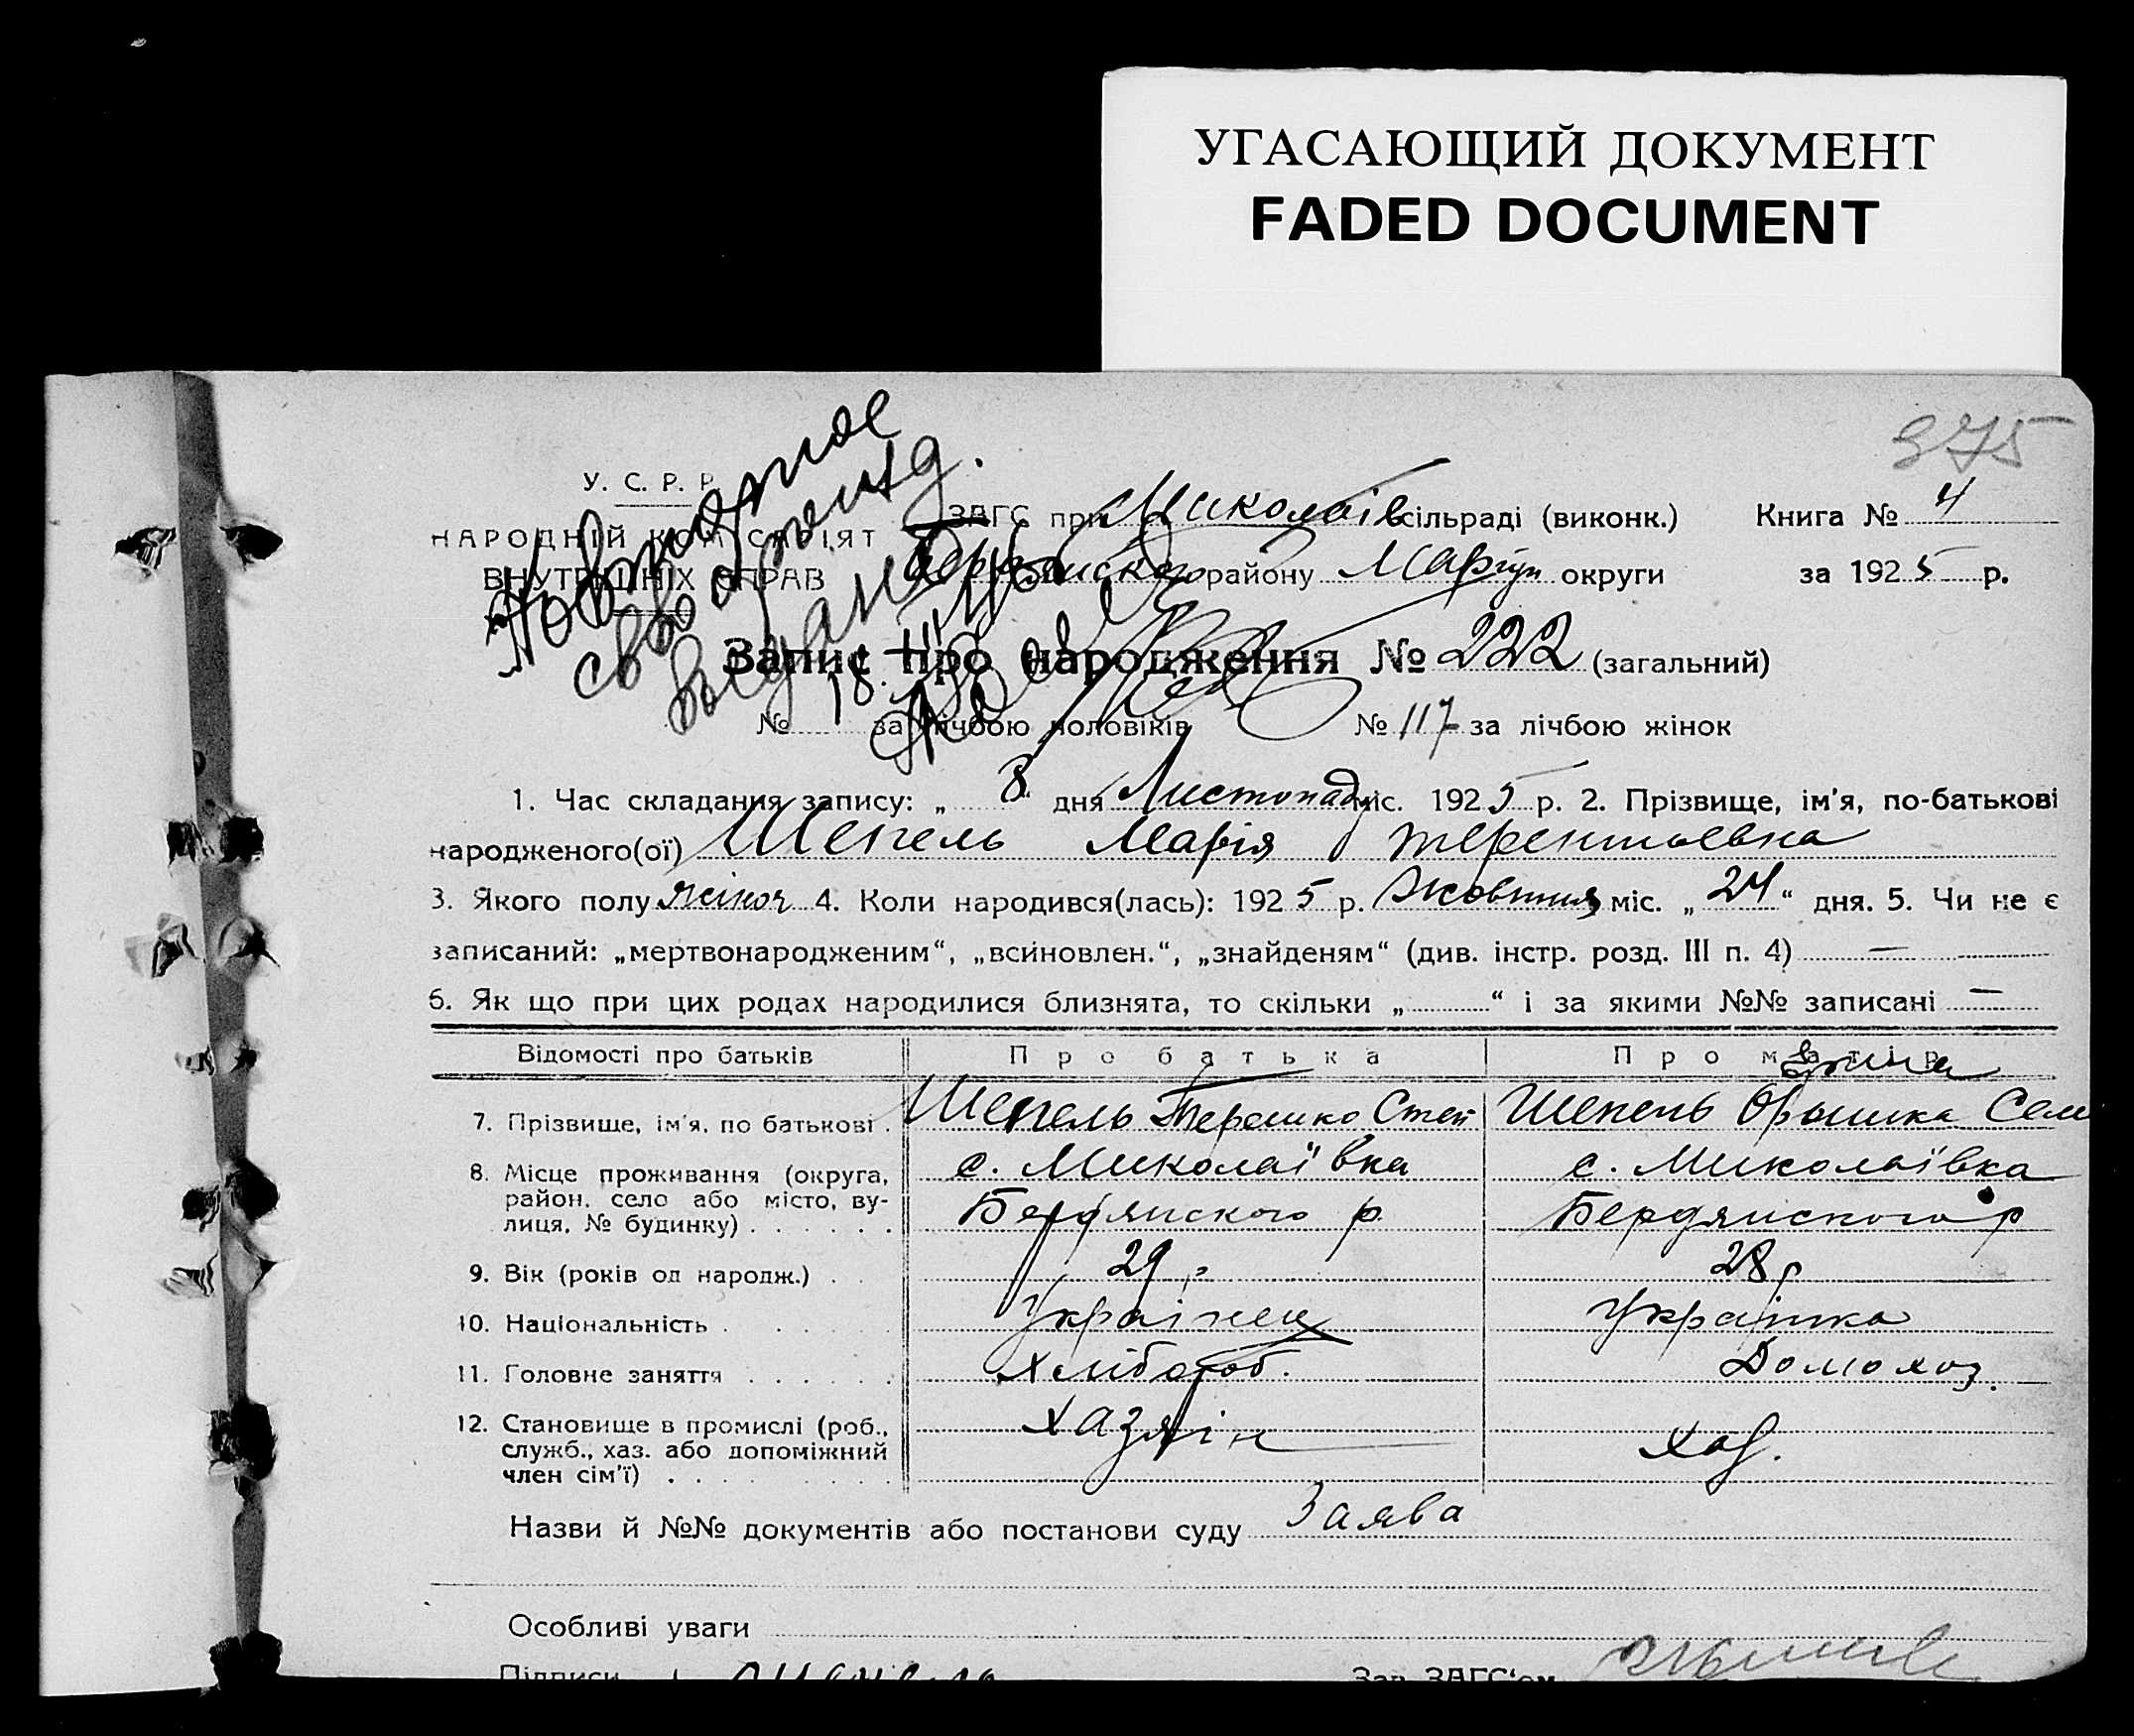 УГАСАЮЩИЙ ДОКУМЕНТ
FADED DOCUMENT
375
У. С. Р. Р.
НАРОДНІЙ КОМІСАРІЯТ
ВНУТРІШНІХ СПРАВ
Повторное
свво о рожд.
выдано
18.
ЗАГС при Миколаів сільраді (виконк.) Книга № 4
Бердянського району Маріуп округи за 1925 р.
Запис про народження № 222 (загальний)
№ за лічбою чоловіків № 117 за лічбою жінок
1. Час складання запису: „ 8 " дня Листопад міс. 1925 р. 2. Прізвище, ім'я, по-батькові
народженого(ої) Шепель Марія терентьевна
3. Якого полу жіноч 4. Коли народився(лась): 1925 р. Жовтня міс. „ 24 “ дня. 5. Чи не є
записаний: „мертвонародженим“, „всиновлен.“, „знайденям“ (див. інстр. розд. III п. 4) —
6. Як що при цих родах народилися близнята, то скільки „ “ і за якими №№ записані —
Відомості про батьків Про батька Про матір
7. Прізвище, ім'я, по батькові . Шепель Терешко Степ Шепель Орышка Сем
8. Місце проживання (округа, район, село або місто, ву-
лиця, № будинку) . . . . . .
с. Миколаївка с. Миколаївка
Бердянского р. Бердянского р
9. Вік (років од народж.) . . 29 р 28 р
10. Національність . . . . . Українец Українка
11. Головне заняття . . . . . . Хлібороб. Домохоз.
12. Становище в промислі (роб.,
служб., хаз. або допоміжний
член сім'ї) . . . . . . . .
хазяін хаз.
Назви й №№ документів або постанови суду Заява
Особливі уваги
Підписи Зав. ЗАГС‘ом